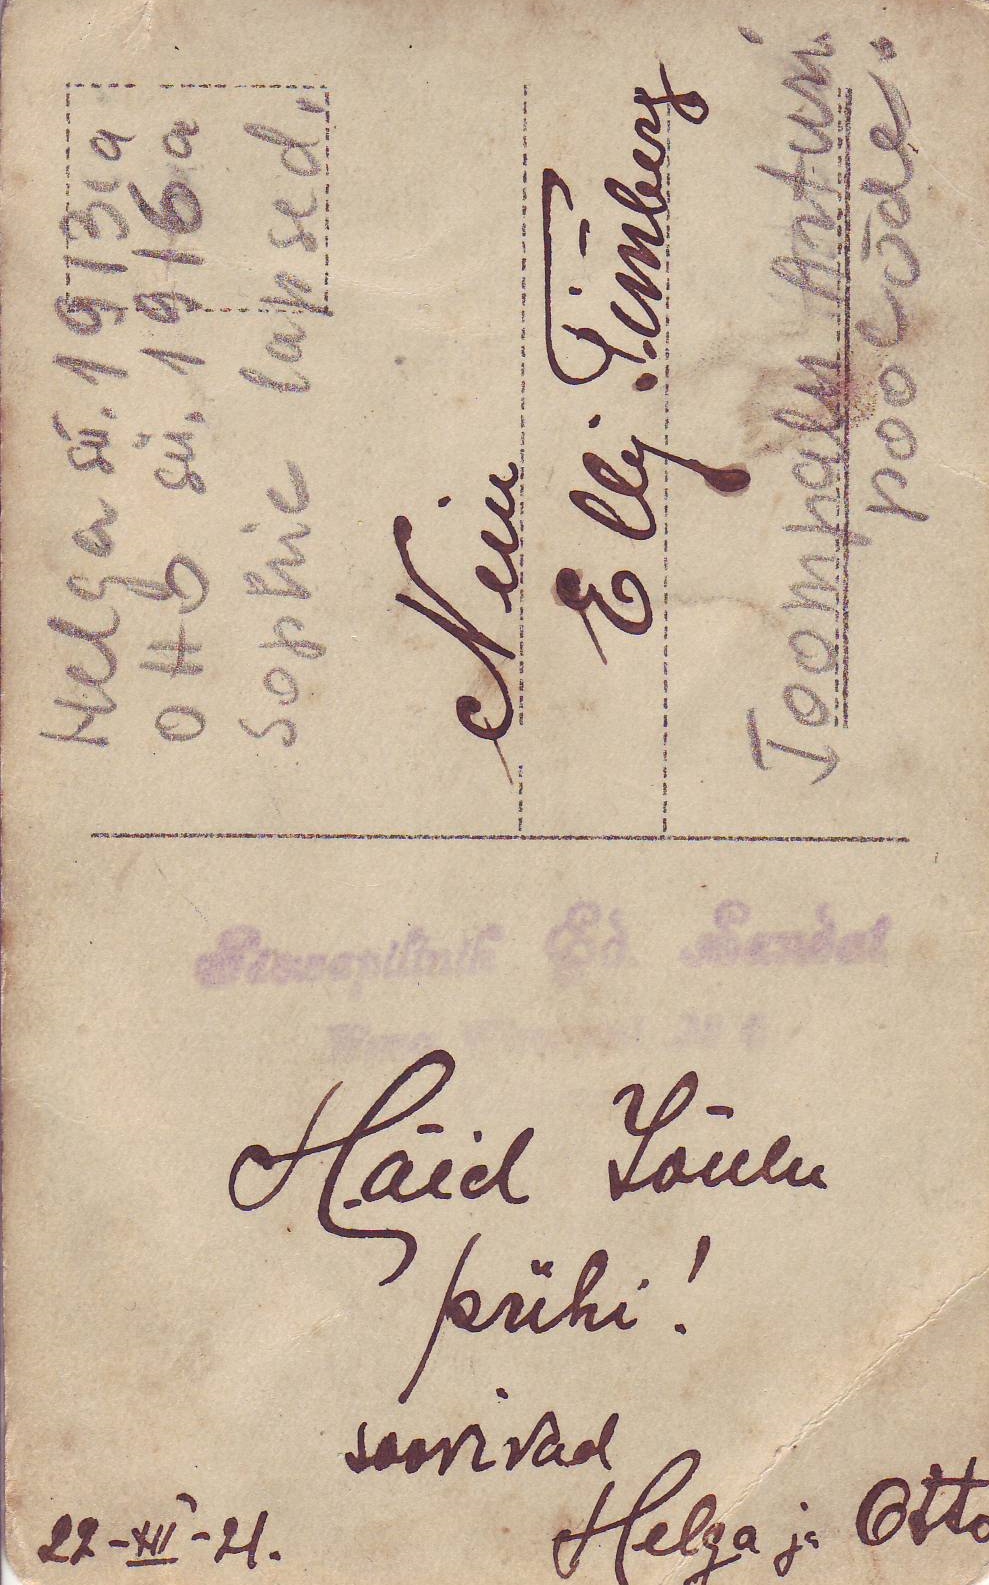 Helga sü. 1913 a
Otto sü. 1916 a
Sophie lapsed.
Neiu
Elly Timberg
Toompalu Arturi
poolõde.
Päewapiltnik Ed.
Häid Jõulu
pühi!
soovivad
Helga ja Otto
22-XII-21.